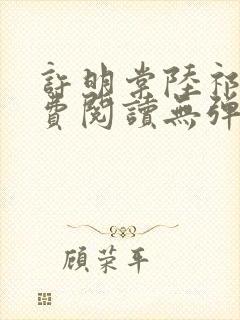 許明棠陸祁
費閱讀無彈
顧荣平